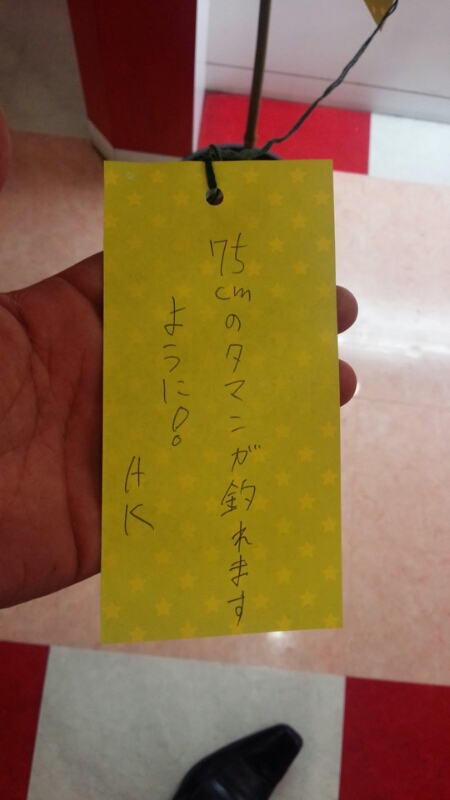 75cmのタマンが釣れます
ように!
HK